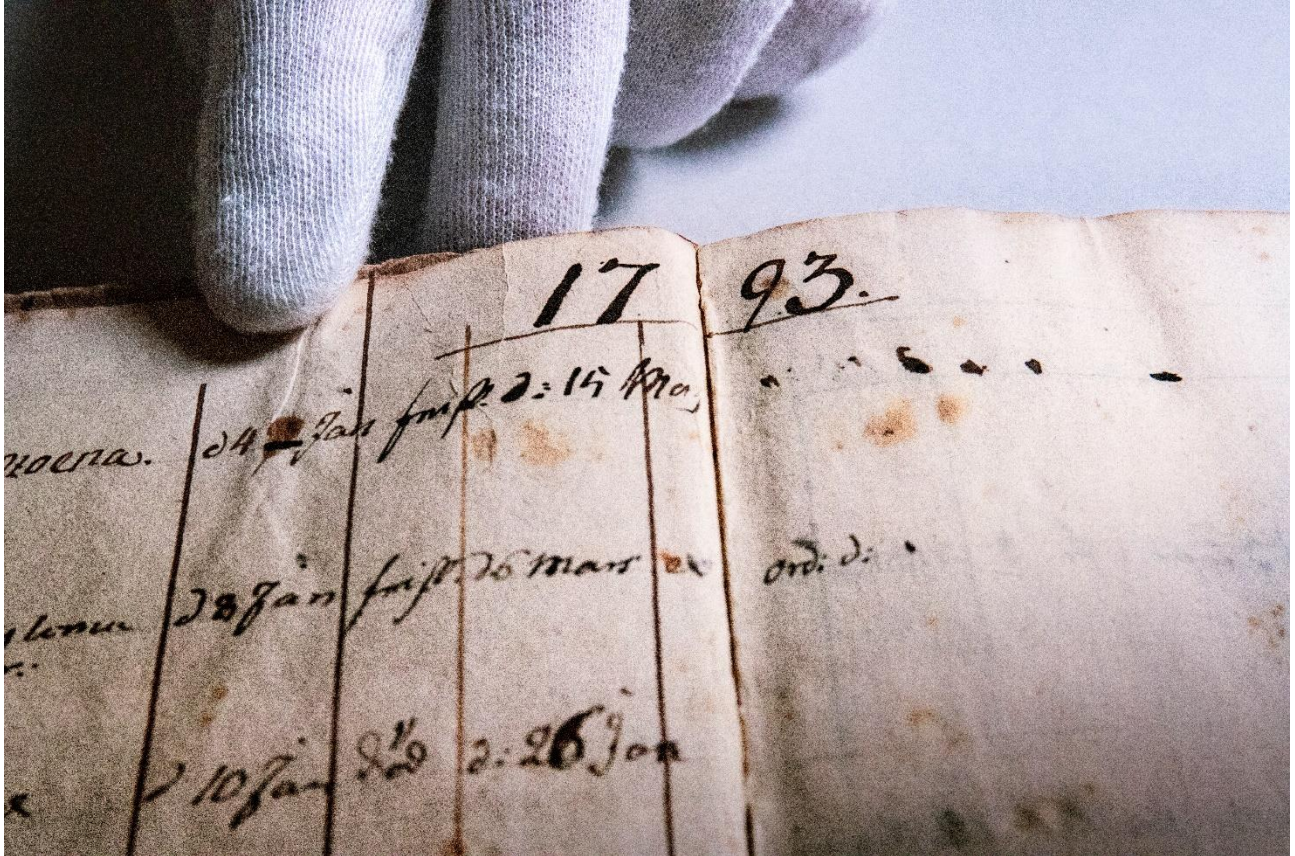 17 93.
d 4 Jan frisk. d: 15 Ma
d 8 Jan frisk. d 6 Mars ord: d:
10 Jan död d: 26 Jan